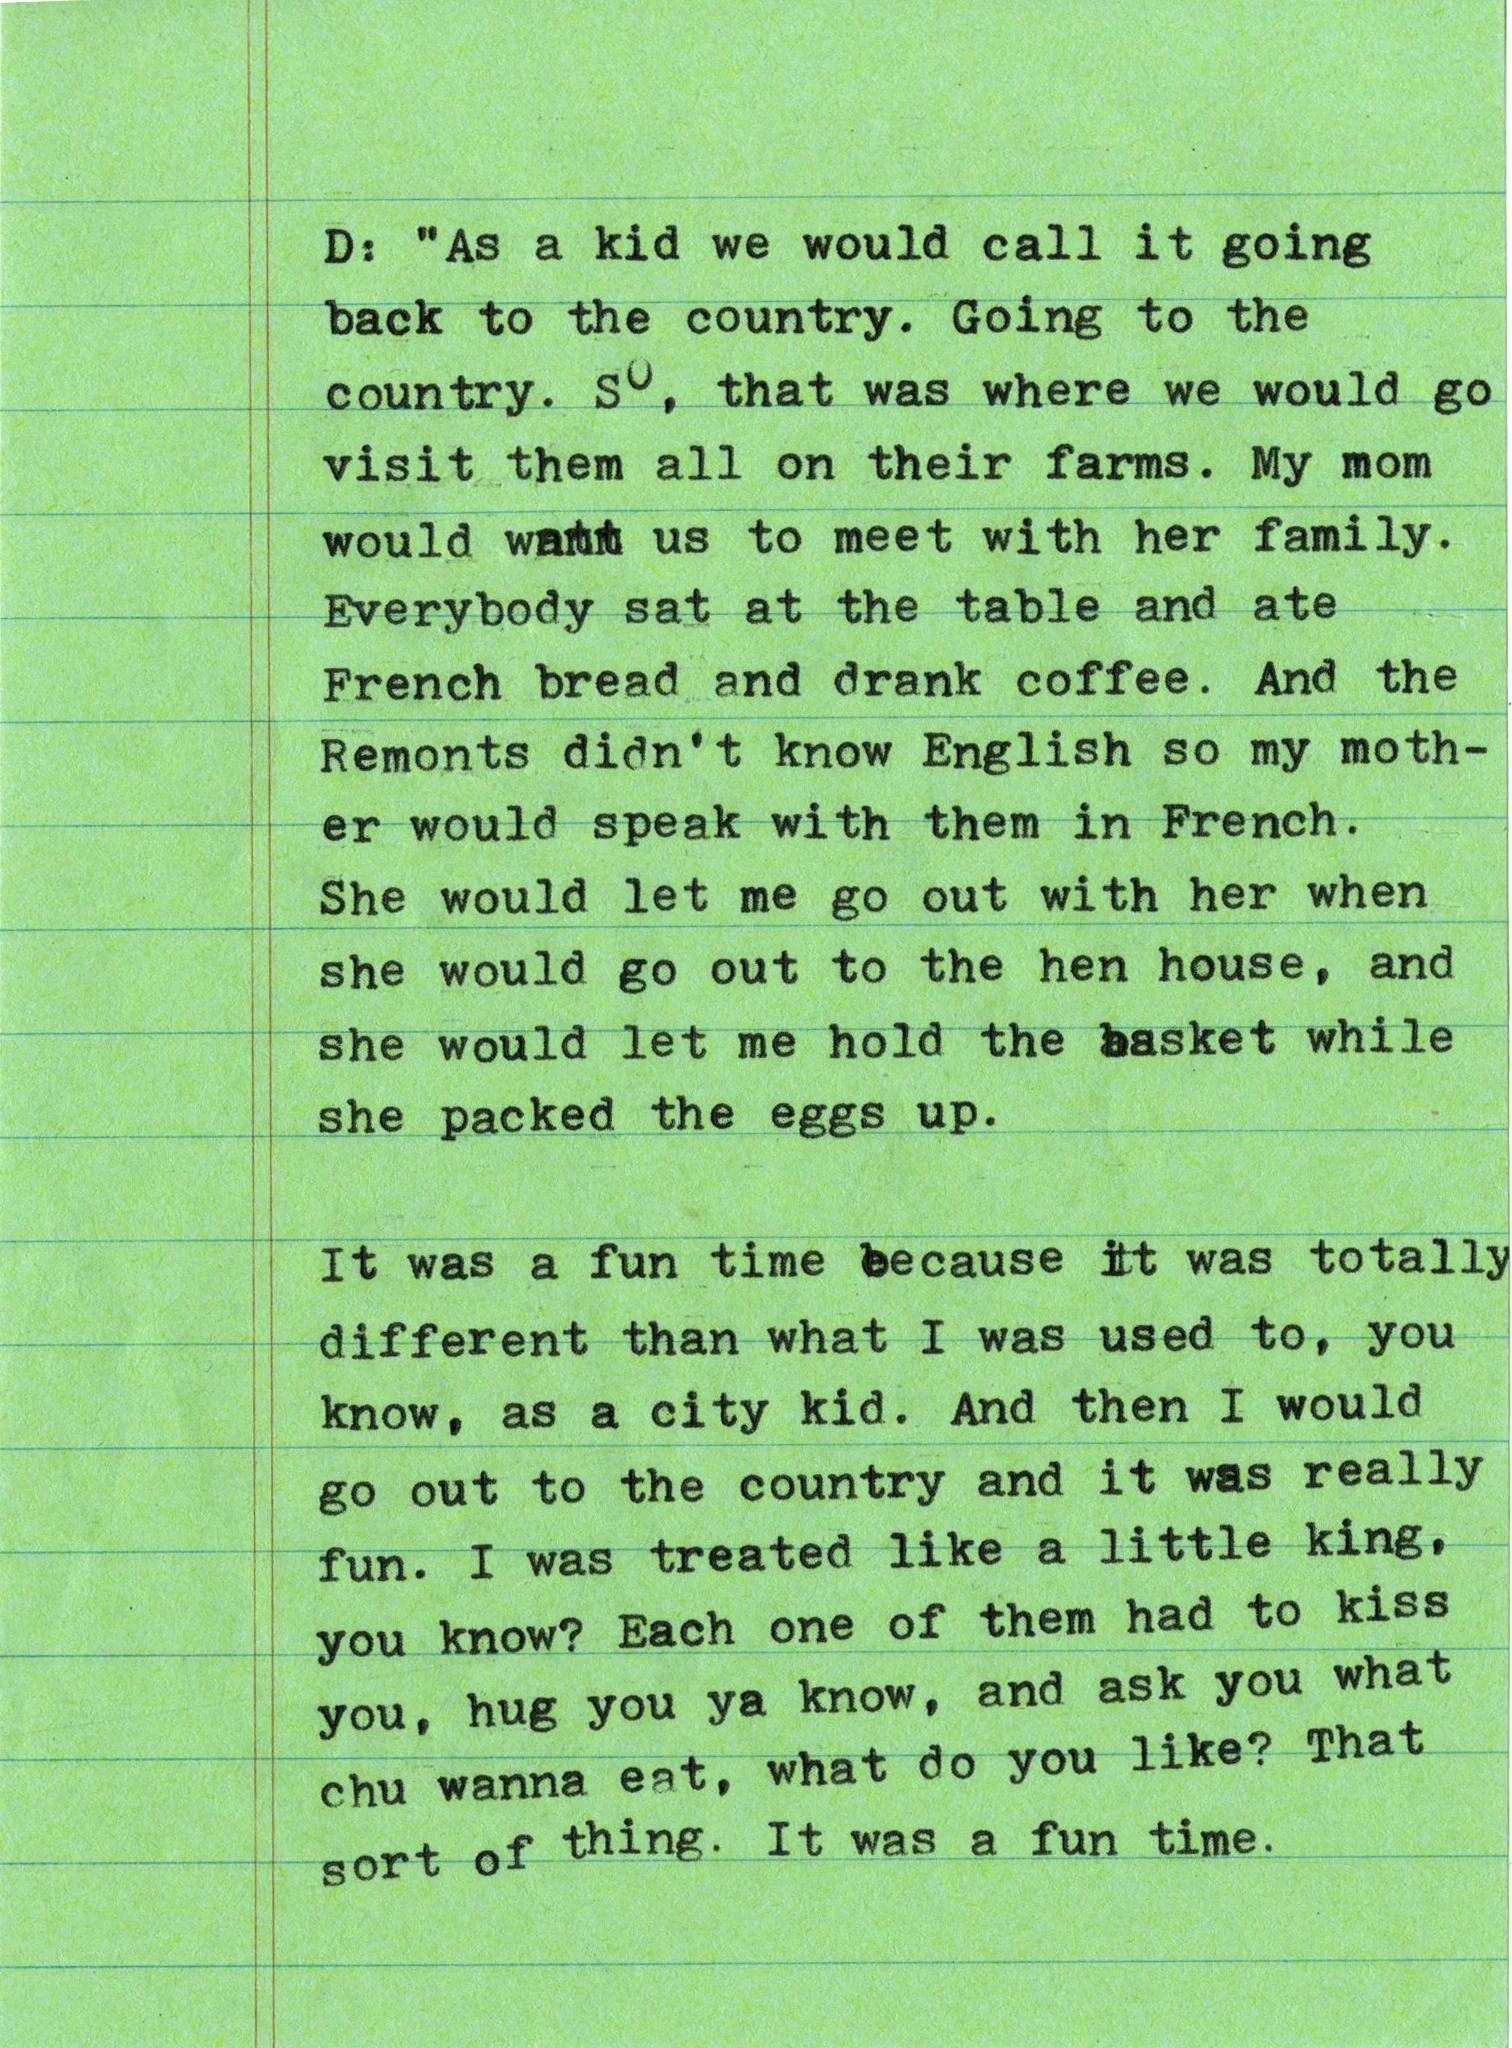 D: "As a kid we would call it going
back to the country. Going to the
country. So, that was where we would go
visit them all on their farms. My mom
would want us to meet with her family.
Everybody sat at the table and ate
French bread and drank coffee. And the
Remonts didn't know English so my moth-
er would speak with them in French.
She would let me go out with her when
she would go out to the hen house, and
she would let me hold the basket while
she packed the eggs up.

It was a fun time because it was totally
different than what I was used to, you
know, as a city kid. And then I would
go out to the country and it was really
fun. I was treated like a little king,
you know? Each one of them had to kiss
you, hug you ya know, and ask you what
chu wanna eat, what do you like? That
sort of thing. It was a fun time.